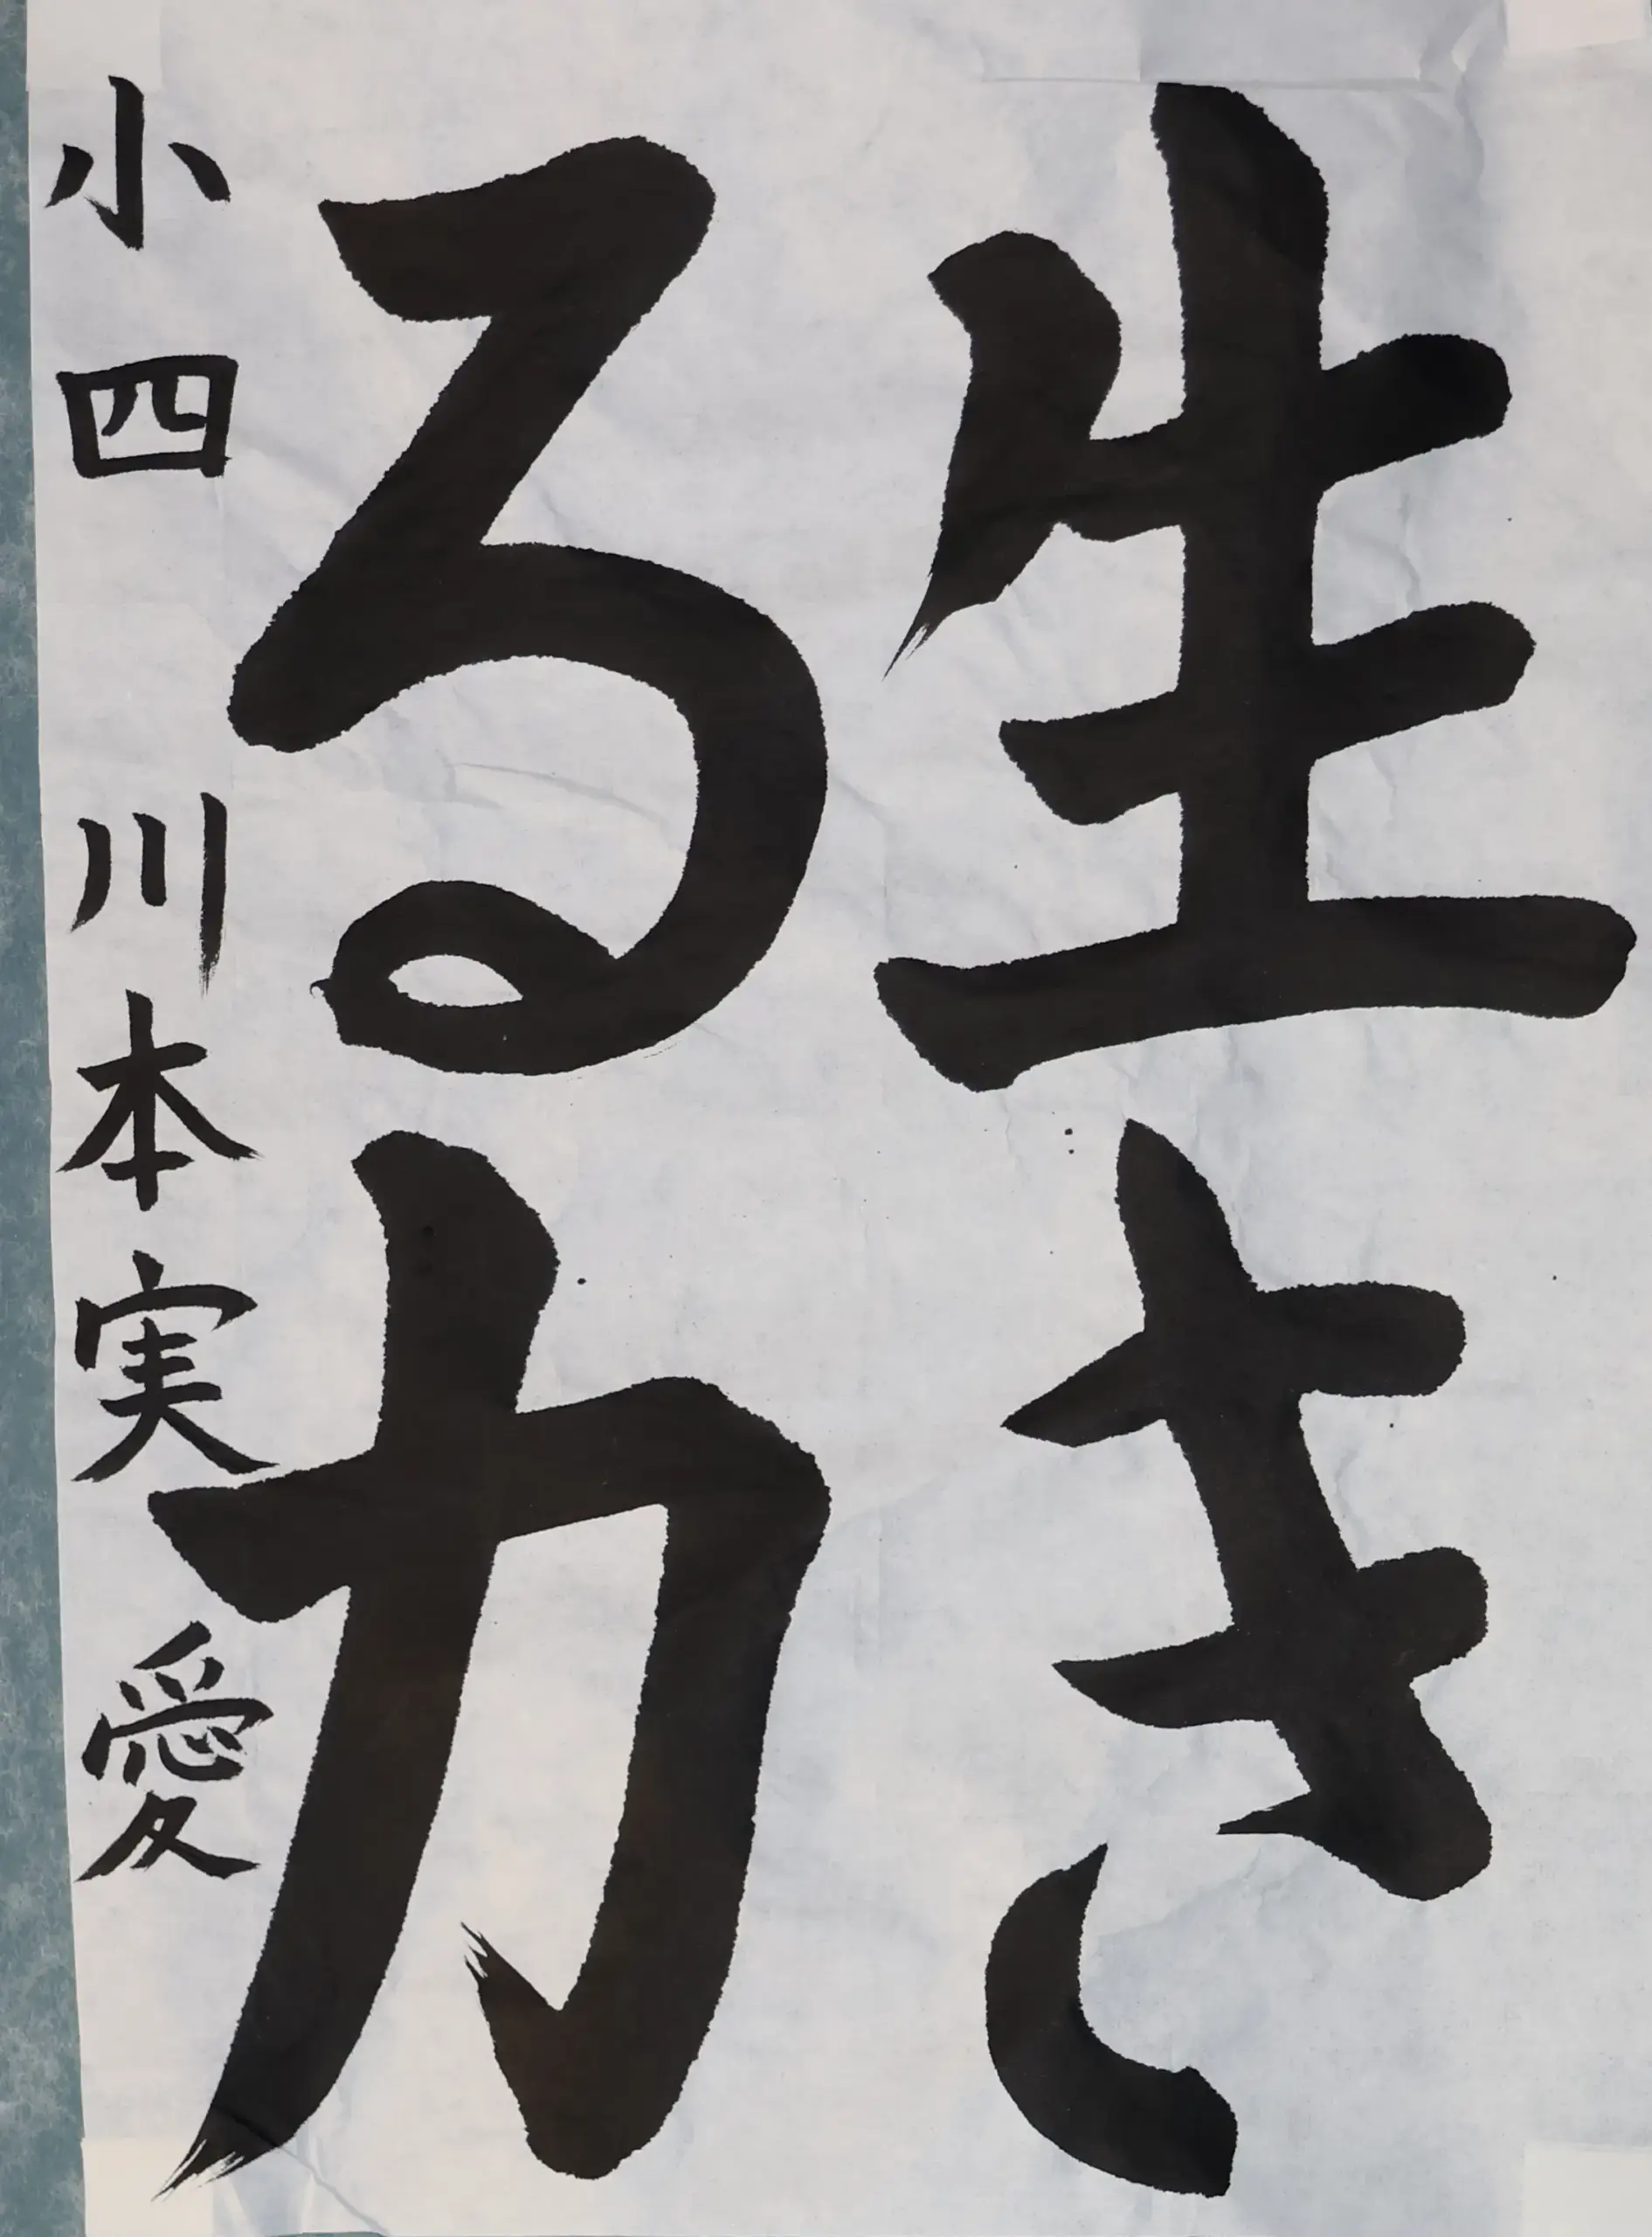 生き
る力
小四 川本実愛